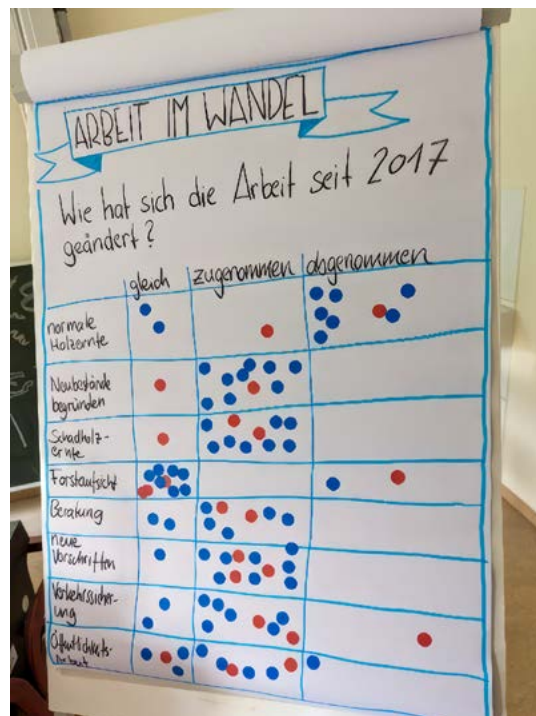 ARBEIT IM WANDEL
Wie hat sich die Arbeit seit 2017
geändert?
gleich zugenommen abgenommen
normale
Holzernte
Neubestände
begründen
Schadholz-
ernte
Forstaufsicht
Beratung
neue
Vorschriften
Verkehrssicher-
ung
Öffentlichkeits-
arbeit